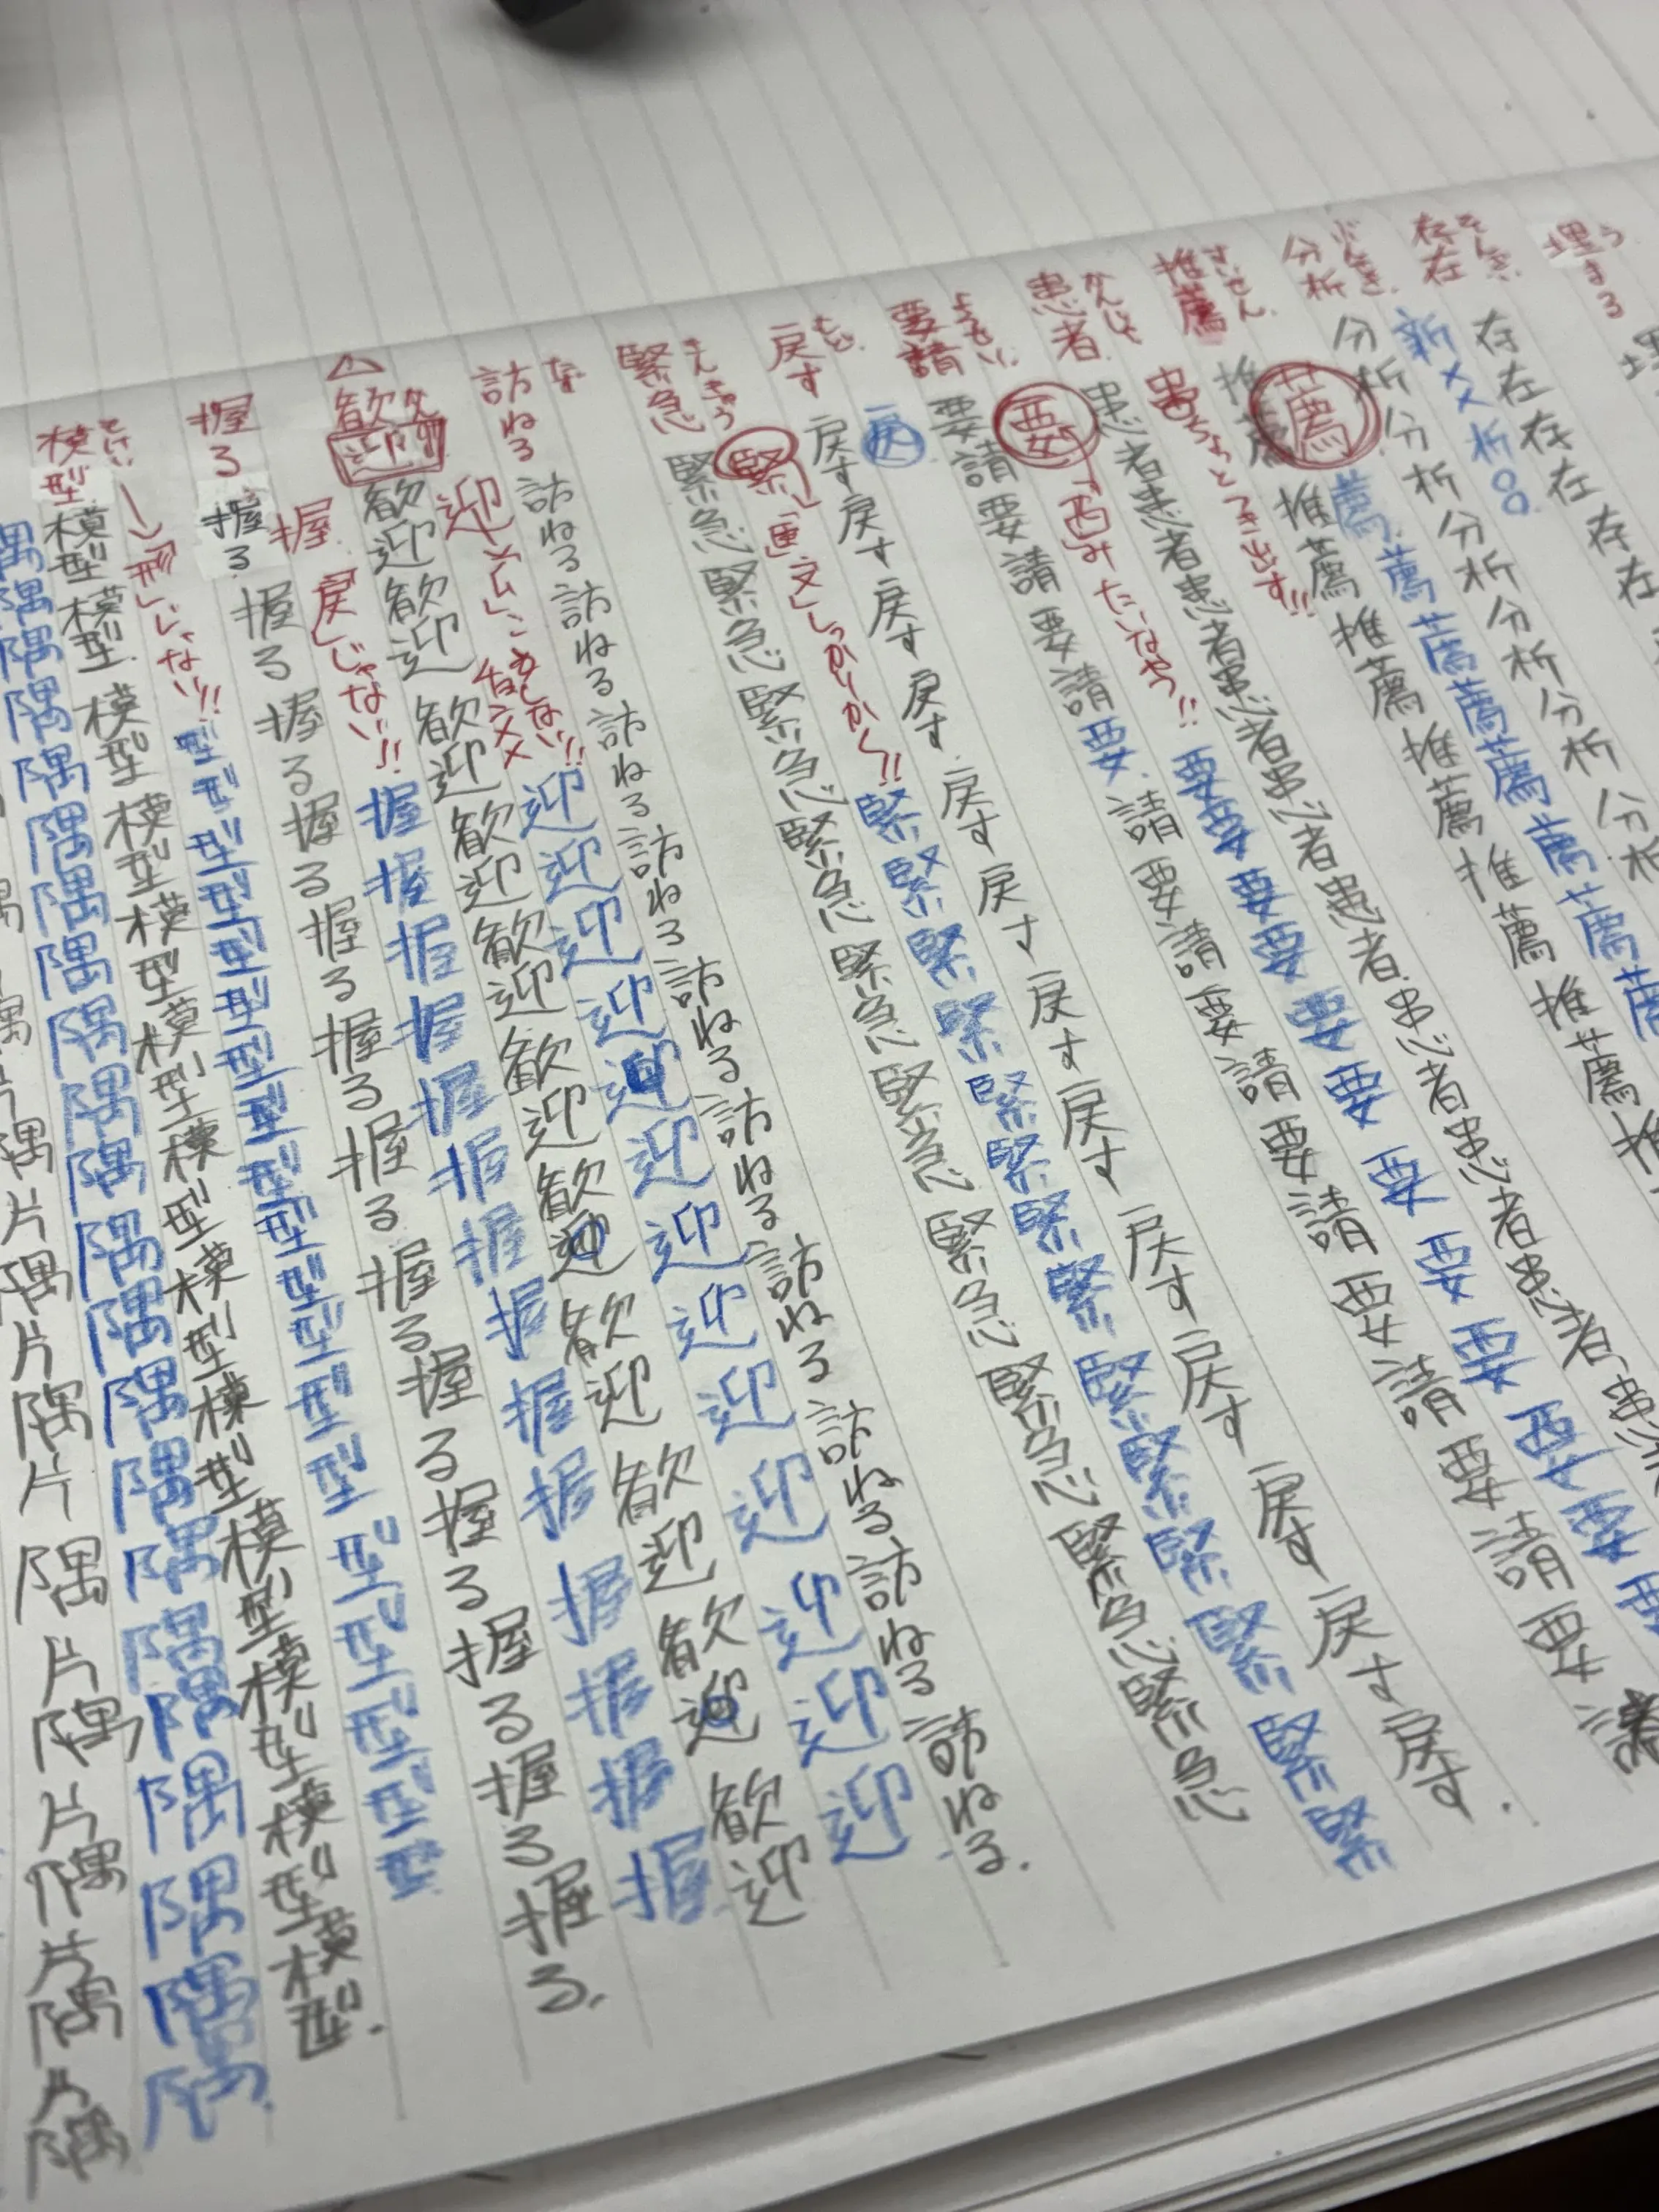 埋まる う
存在 そんざい
存在存在存在存在
分析 ぶんせき
新××析○○
分析分析分析分析分析分析分析
推薦 すいせん
薦
薦薦薦薦薦薦薦薦
推薦推薦推薦推薦推薦推薦推薦
患者 かんじゃ
串ちょっとつき出す!!
患者患者患者患者患者患者患者患者患者患者
要請 ようせい
要 「西」みたいなやつ!!
要要要要要要要要要要要要
要請要請要請要請要請要請要請要請要請要請
戻す もど
戻
戻す戻す戻す戻す戻す戻す戻す戻す戻す戻す戻す戻す
緊急 きんきゅう
緊 「臣」文しっかりかく!!
緊緊緊緊緊緊緊緊緊緊緊緊緊緊
緊急緊急緊急緊急緊急緊急緊急緊急緊急緊急緊急
訪ねる
訪ねる訪ねる訪ねる訪ねる訪ねる訪ねる訪ねる訪ねる訪ねる訪ねる
歓迎
迎
迎迎迎迎迎迎迎迎迎迎迎迎迎
歓迎歓迎歓迎歓迎歓迎歓迎歓迎歓迎歓迎歓迎歓迎歓迎
握る
握 戻じゃない!!
握握握握握握握握握握握握握
握る握る握る握る握る握る握る握る握る握る握る握る
模型
→「形」じゃない!!
型型型型型型型型型型型型型型型型
模型模型模型模型模型模型模型模型模型模型模型模型模型
隅隅隅隅隅隅隅隅隅隅隅隅隅隅隅隅隅隅隅隅
片隅片隅片隅片隅片隅片隅片隅片隅